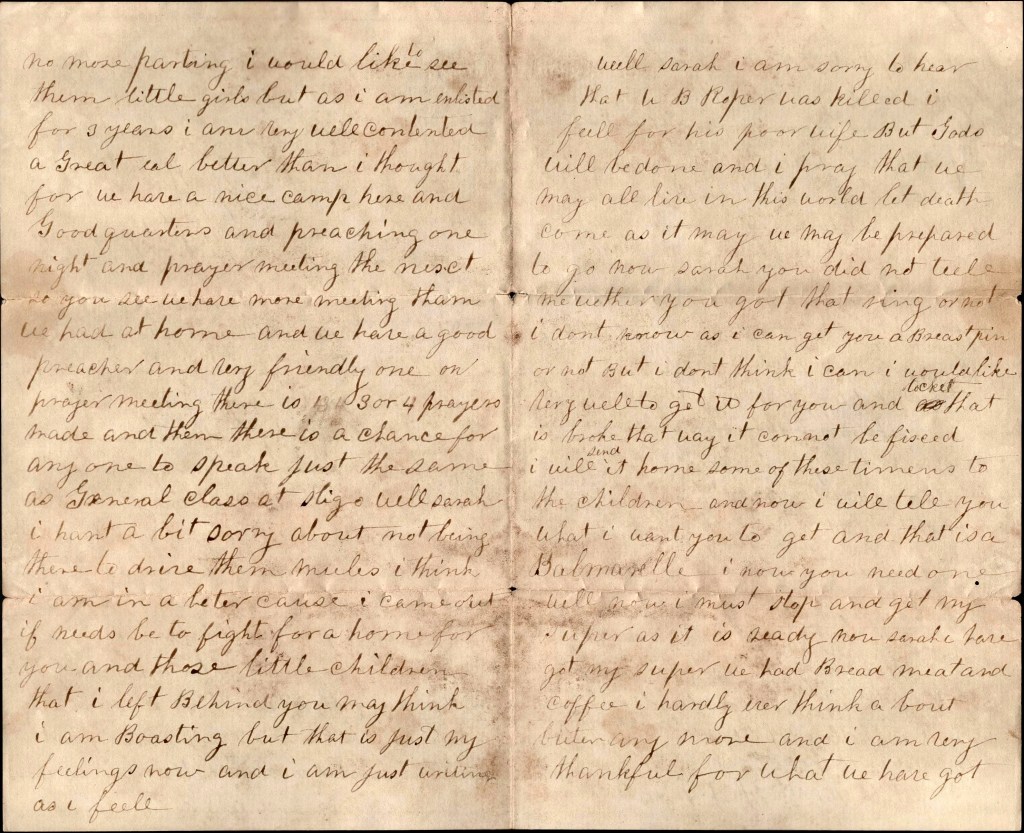 no more parting i would like to see
them little girls but as i am enlisted
for 3 years i am very well contented
a Great eal better than i thought
for we have a nice camp here and
Good quarters and preaching one
night and prayer meeting the nesct
so you see we have more meeting tham
we had at home and we have a good
preacher and very friendly one on
prayer meeting there is 3 or 4 prayers
made and them there is a chance for
any one to speak just the same
as General class at sligo well sarah
i hant a bit sorry about not being
there to drive them mules i think
i am in a beter cause i came out
if needs be to fight for a home for
you and those little children
that i left Behind you may think
i am Boasting but that is just my
feelings now and i am just writing
as i feele
well sarah i am sorry to hear
that B Roper was killed i
feell for his poor wife But Gods
will be done and i pray that we
may all live in this world let death
come as it may we may be prepared
to go now sarah you did not teele
me wether you got that ring or not
i dont know as i can get you a Breastpin
or not But i dont think i can i would like
very well to get it for you and locket that
is broke that way it connot be fisced
i will send it home some of these timens to
the children and now i will tell you
what i want you to get and that is a
Balmarelle i now you need one
well now i must stop and get my
super as it is ready now sarah i have
got my super we had Bread meat and
coffee i hardly ever think a bout
buter any more and i am very
thankful for what we have got